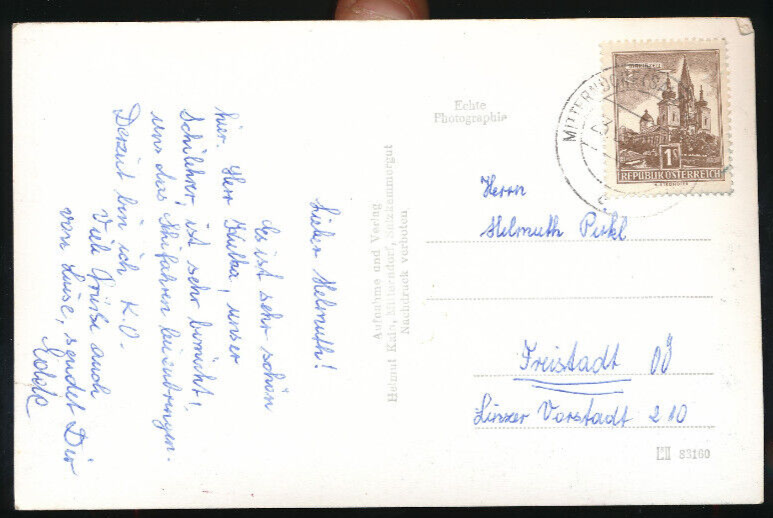 Lieber Helmuth!
Es ist sehr schön
hier. Herr Kutka, unser
Schilehrer, ist sehr bemüht,
uns das Skifahren beizubringen.
Derzeit bin ich K.O.
Viele Grüße auch
von Luise, sendet Dir
Edda
Aufnahme und Verlag
Helmut Kain, Mitterndorf, Salzkammergut
Nachdruck verboten
Echte
Photographie
MARIAZELL
1S
REPUBLIK ÖSTERREICH
MITTERNDORF
Herrn
Helmuth Pirkl
Freistadt OÖ
Linzer Vorstadt 210
83160